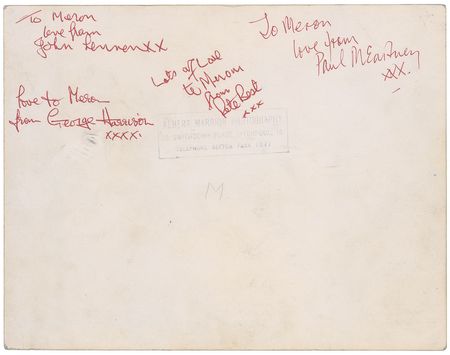 To Meron
love from
John Lennon xx
To Meron
love from
Paul McCartney
xxx.
Lots of Love
to Merom
from
Pete Best
xxx
Love to Meron
from George Harrison
xxxx.
ALBERT MARRION PHOTOGRAPHY
LIVERPOOL
TELEPHONE
M